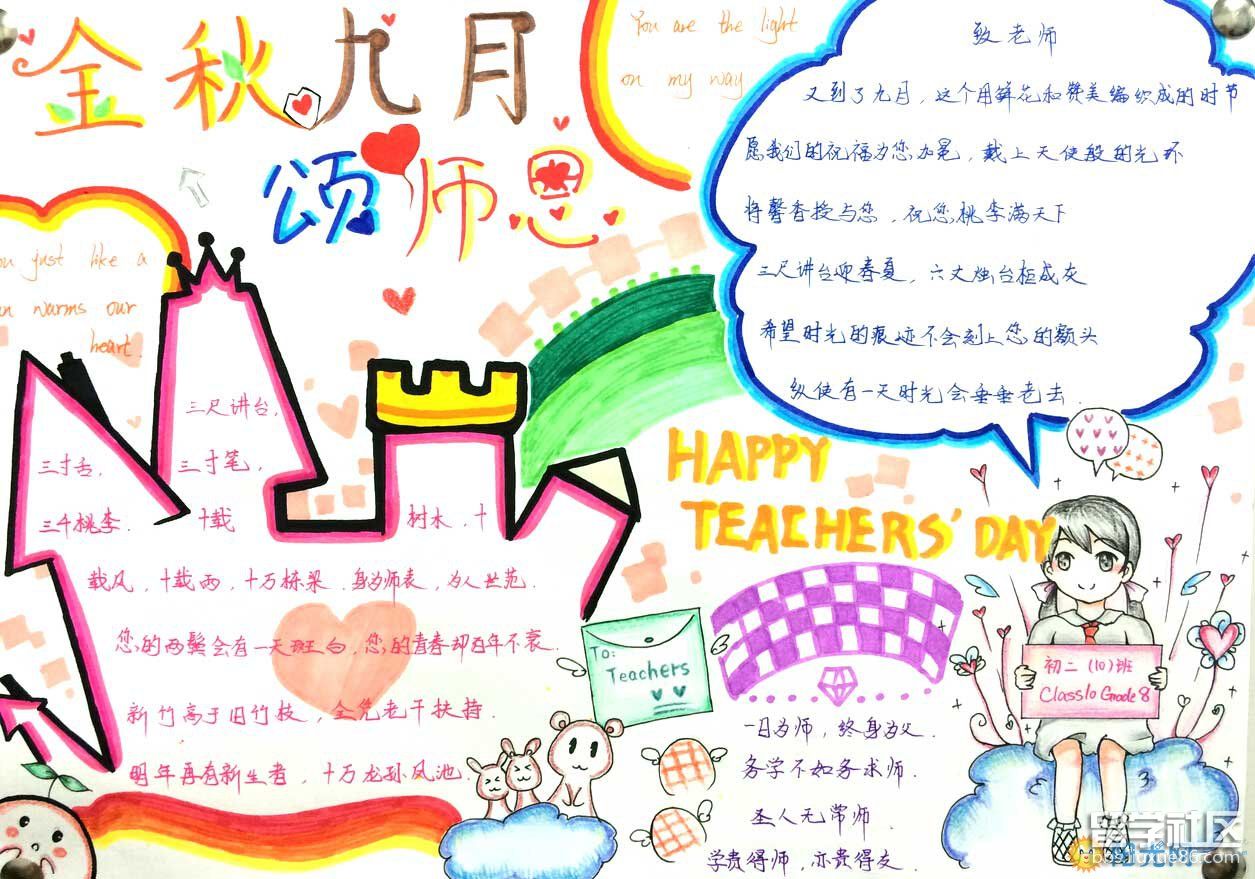 金秋九月
颂师恩
You are the light
on my way
致老师
又到了九月，这个用鲜花和赞美编织成的时节
愿我们的祝福为您加冕，戴上天使般的光环
将馨香授与您，祝您桃李满天下
三尺讲台迎春夏，六丈烛台柜成灰
希望时光的痕迹不会刻上您的额头
纵使有一天时光会垂垂老去.
ou just like a
un warms our
heart.
三尺讲台，
三寸舌，
三寸笔，
三千桃李.
十载
树木，十
载风，十载雨，十万栋梁.身为师表，为人世范.
您的两鬓会有一天斑白，您的青春却百年不衰.
新竹高于旧竹枝，全凭老干扶持.
明年再有新生者，十万龙孙凤池.
HAPPY
TEACHERS' DAY
To:
Teachers
初二（10）班
Class10 Grade8
一日为师，终身为父.
务学不如务求师.
圣人无常师.
学贵得师，亦贵得友.
留学社区